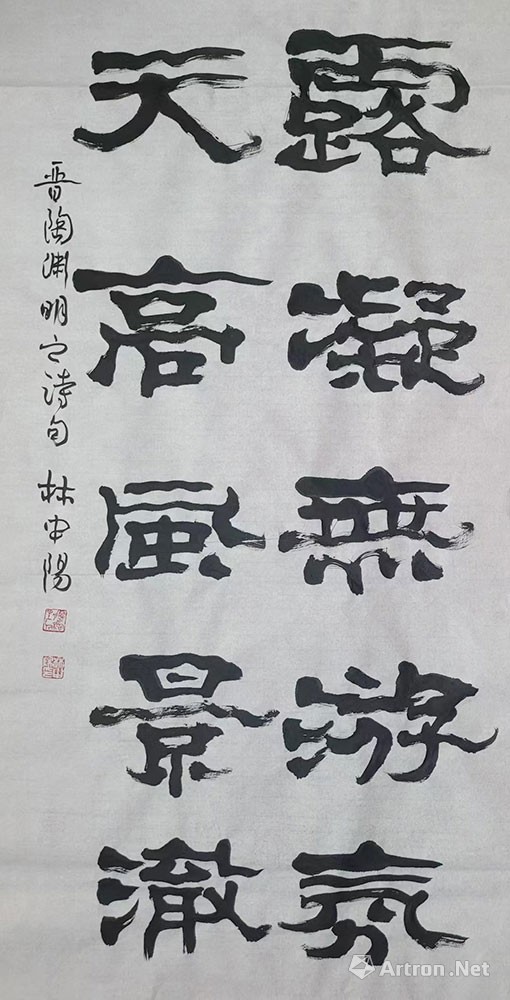 露凝無游氛
天高風景澈
晋陶渊明之诗句 林中陽
Artron.Net